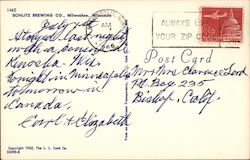 1482
SCHLITZ BREWING CO., Milwaukee, Wisconsin
July 7
Stayed last night
with a
Kenosha. Wis
tonight in Minneapolis
Tomorrow in
Canada.
Earl & Elizabeth
AM
ALWAYS U
YOUR ZIP CO
Post Card
Mr & Mrs Clarence Lord
Rt. Box 235
Bishop, Calif
Copyright 1952, The L. L. Cook Co.